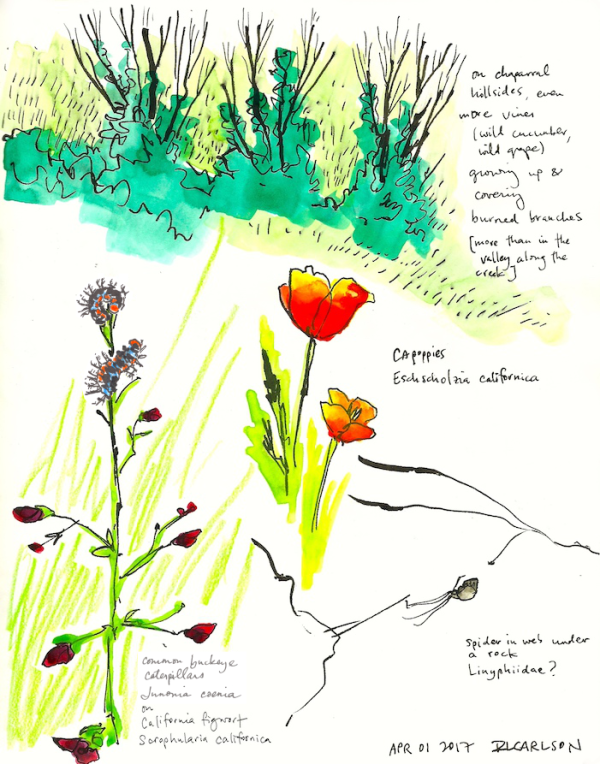 on chaparral
hillsides, even
more vines
(wild cucumber,
wild grape)
growing up &
covering
burned branches
[more than in the
valley along the
creek]
CA poppies
Eschscholzia californica
spider in web under
a rock
Linyphiidae?
common buckeye
caterpillars
Junonia coenia
on
California figwort
Scrophularia californica
APR 01 2017 RLCARLSON